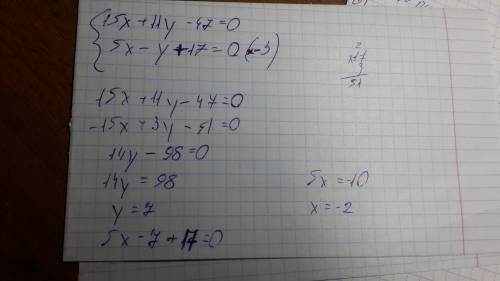 15x+11y-47=0
5x-y+17=0 (×-3)
2
×17
3
51
15x+11y-47=0
-15x+3y-51=0
14y-98=0
14y=98
y=7
5x-7+17=0
5x=-10
x=-2